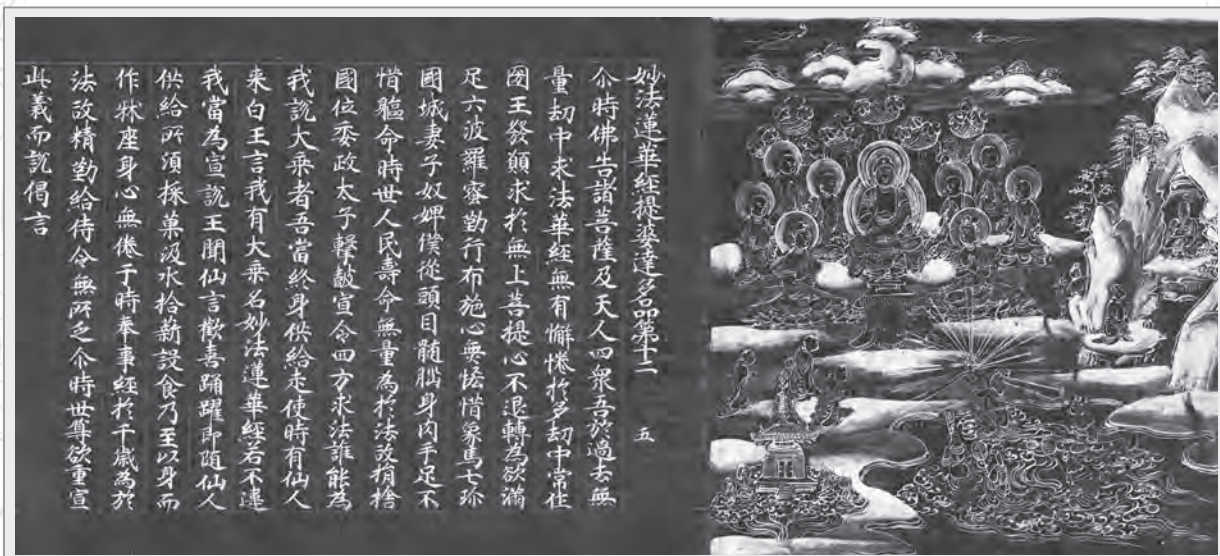 妙法蓮華經提婆達多品第十二 五
尒時佛告諸菩薩及天人四衆吾於過去無
量劫中求法華經無有懈惓於多劫中常作
國王發願求於無上菩提心不退轉為欲滿
足六波羅蜜勤行布施心無悋惜象馬七珎
國城妻子奴婢僕從頭目髄腦身肉手足不
惜軀命時世人民壽命無量為於法故捐捨
國位委政太子擊皷宣令四方求法誰能為
我說大乘者吾當終身供給走使時有仙人
来白王言我有大乘名妙法蓮華經若不違
我當為宣說王聞仙言歡喜踊躍即随仙人
供給所須採菓汲水拾薪設食乃至以身而
作牀座身心無倦于時奉事經於千歳為於
法故精勤給侍令無所乏尒時世尊欲重宣
此義而說偈言